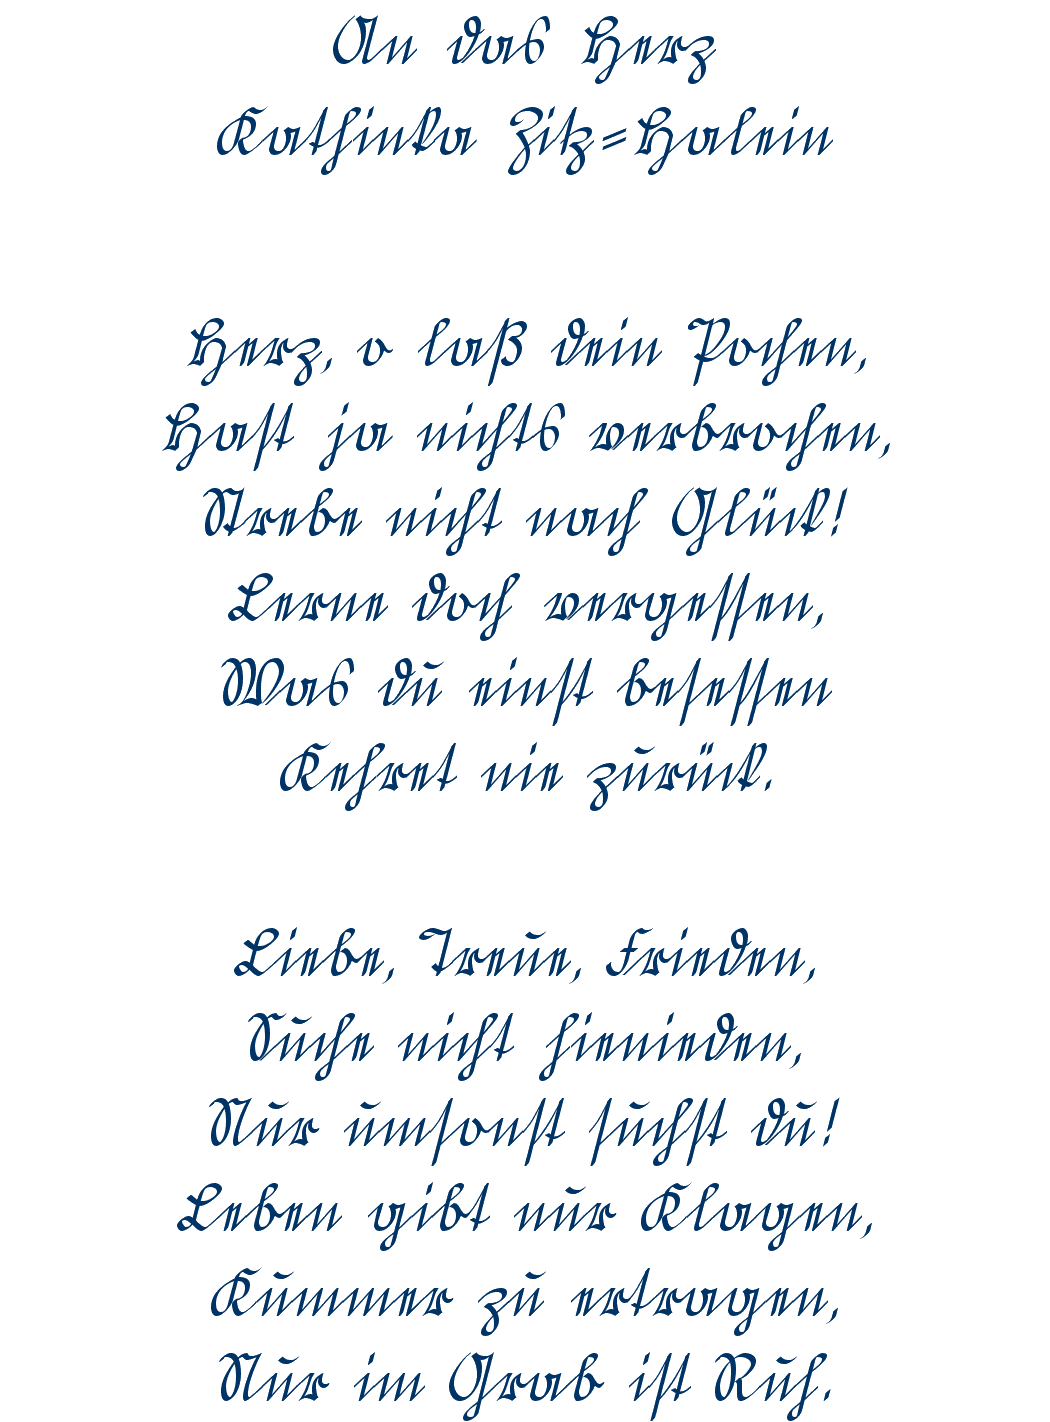 An das Herz
Kathinka Zitz=Halein
Herz, o laß dein Pochen,
Hast ja nichts verbrochen,
Strebe nicht nach Glück!
Lerne doch vergessen,
Was du einst besessen
Kehret nie zurück.
Liebe, Treue, Frieden,
Suche nicht hienieden,
Nur umsonst suchst du!
Leben gibt nur Klagen,
Kummer zu ertragen,
Nur im Grab ist Ruh.